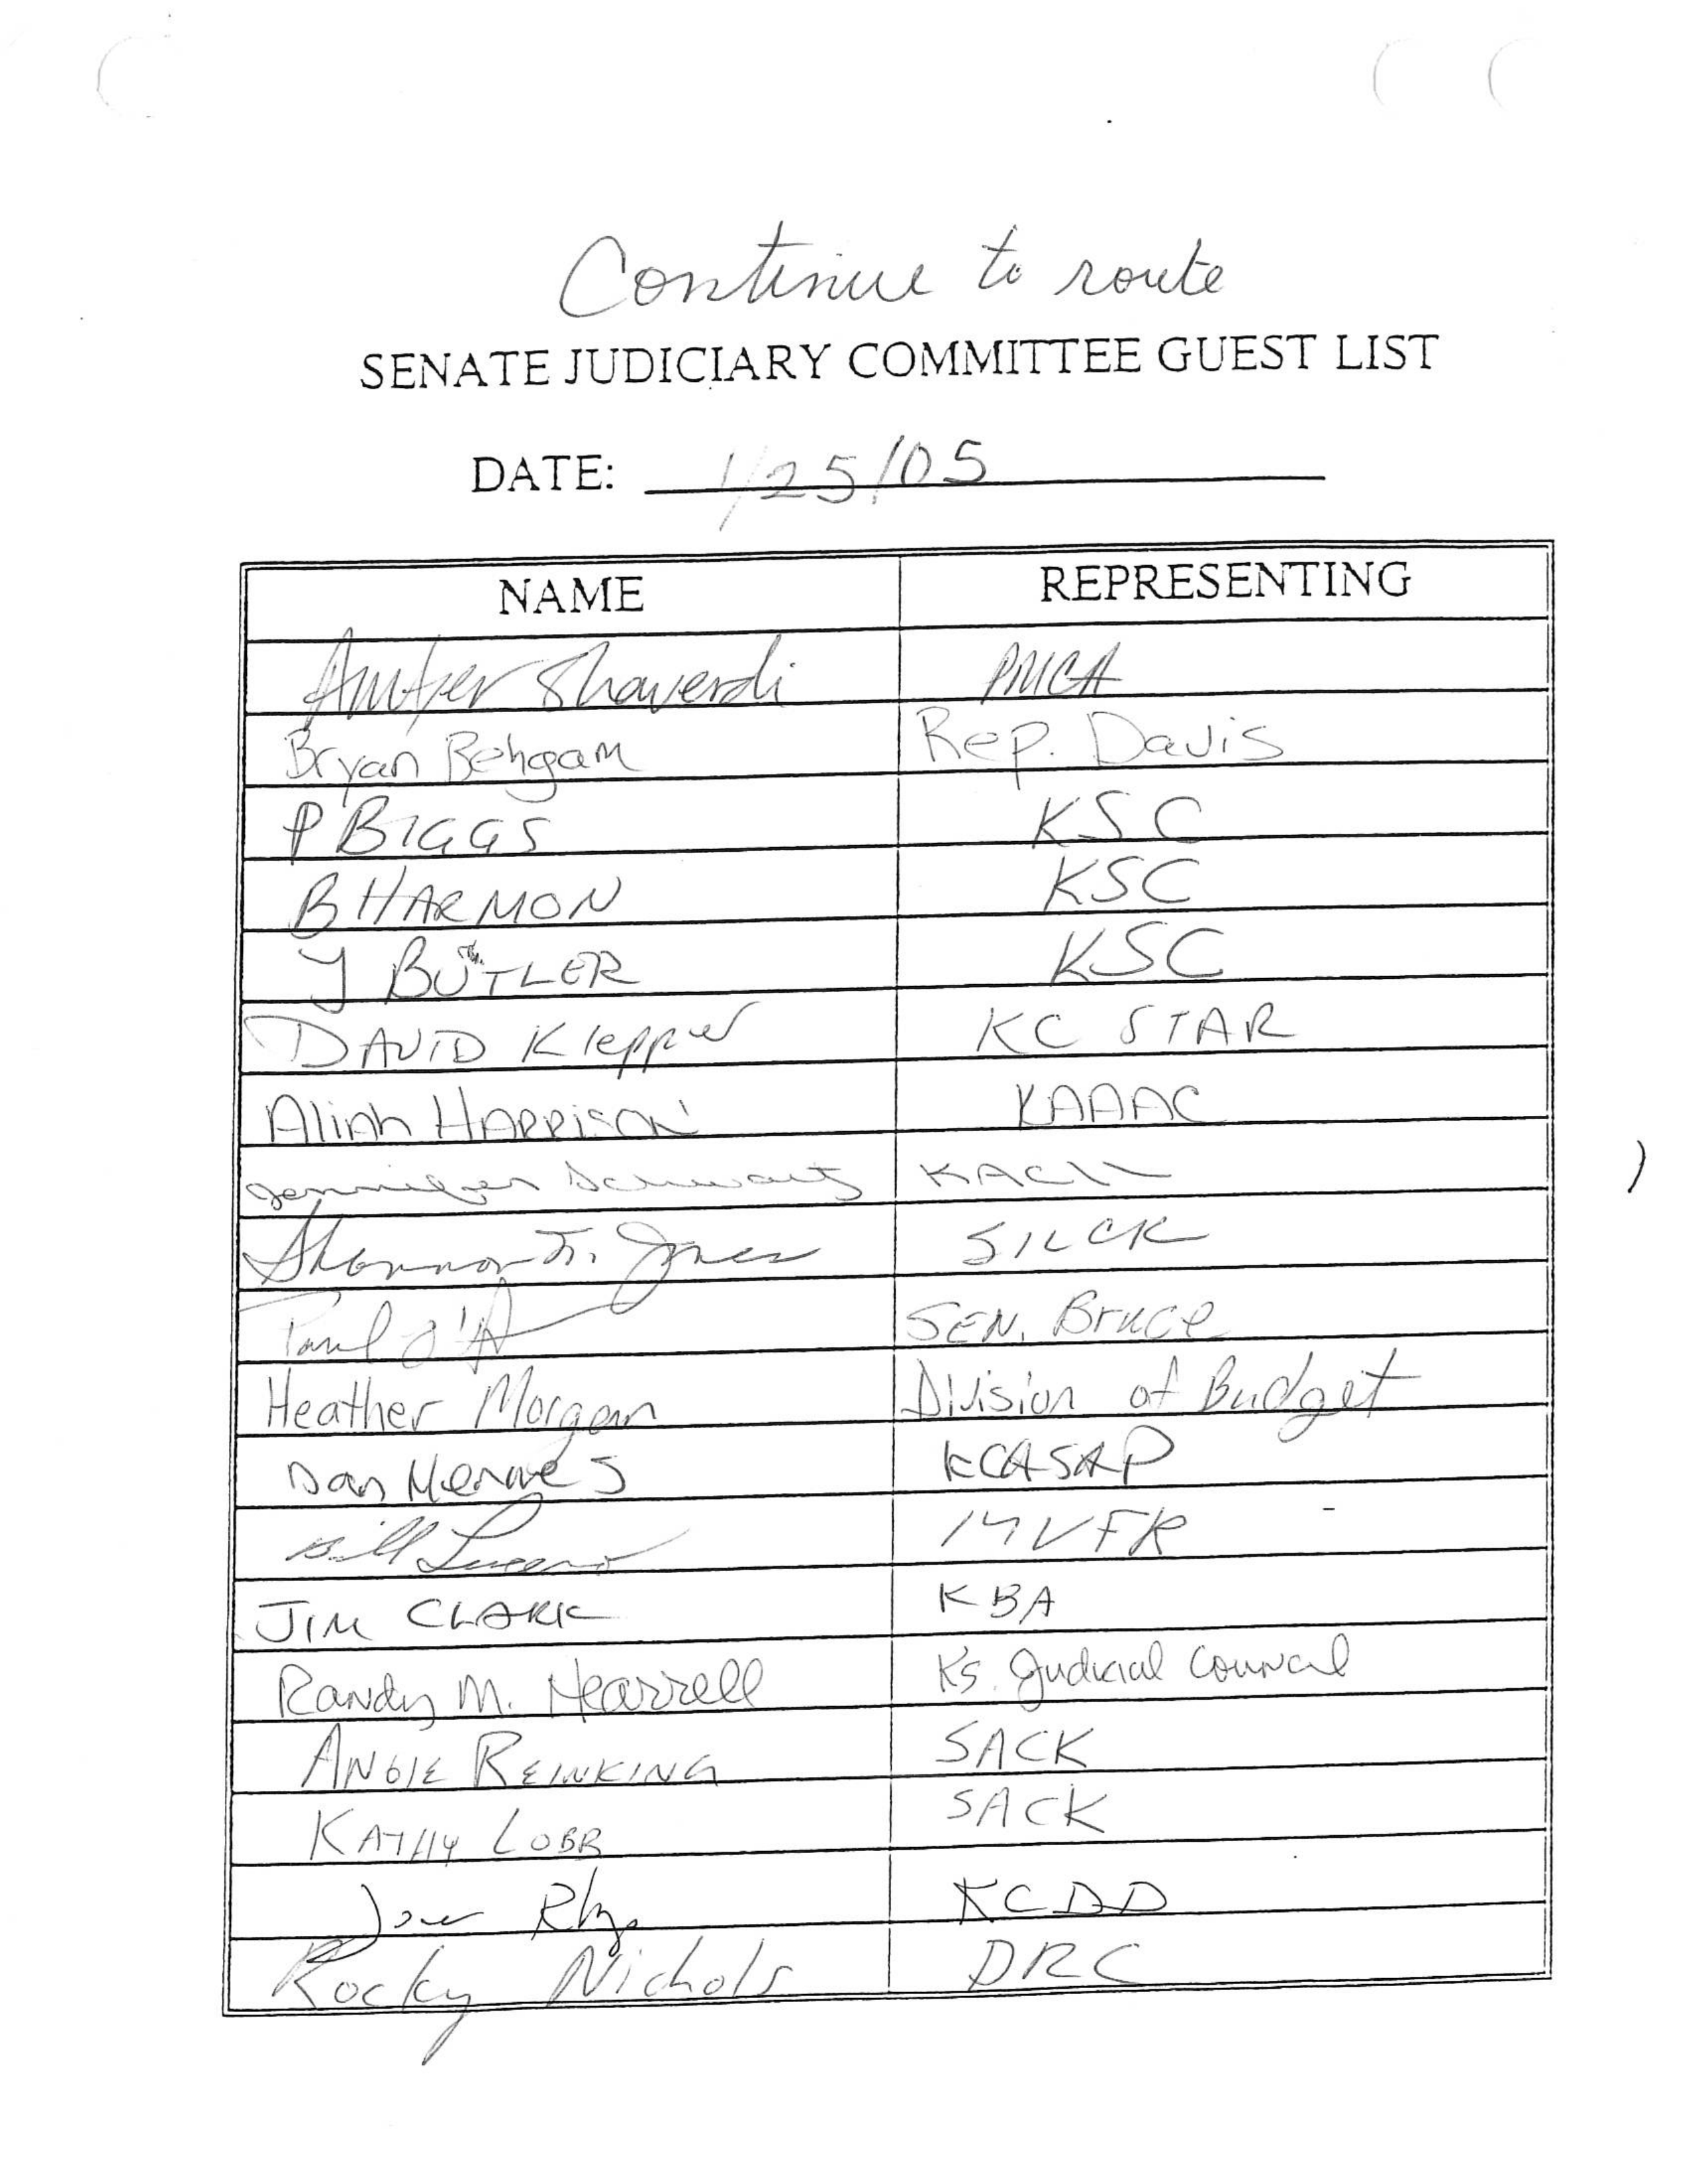 Continue to route
SENATE JUDICIARY COMMITTEE GUEST LIST
DATE: 1/25/05
NAME REPRESENTING
Amber Shaverdi PMCA
Bryan Behgam Rep. Davis
P BIGGS KSC
B HARMON KSC
J BUTLER KSC
DAVID Klepper KC STAR
Aliah HARRISON KAAAC
Jennifer Schwartz KACIL
Shannon Jones SILCK
Paul SEN. Bruce
Heather Morgan Division of Budget
Dan Hermes KCASAP
Bill
JIM CLARK KBA
Randy M. Hearrell Ks. Judicial Council
ANGIE REINKING SACK
KATHY LOBB SACK
KCDD
Rocky Nichols DRC